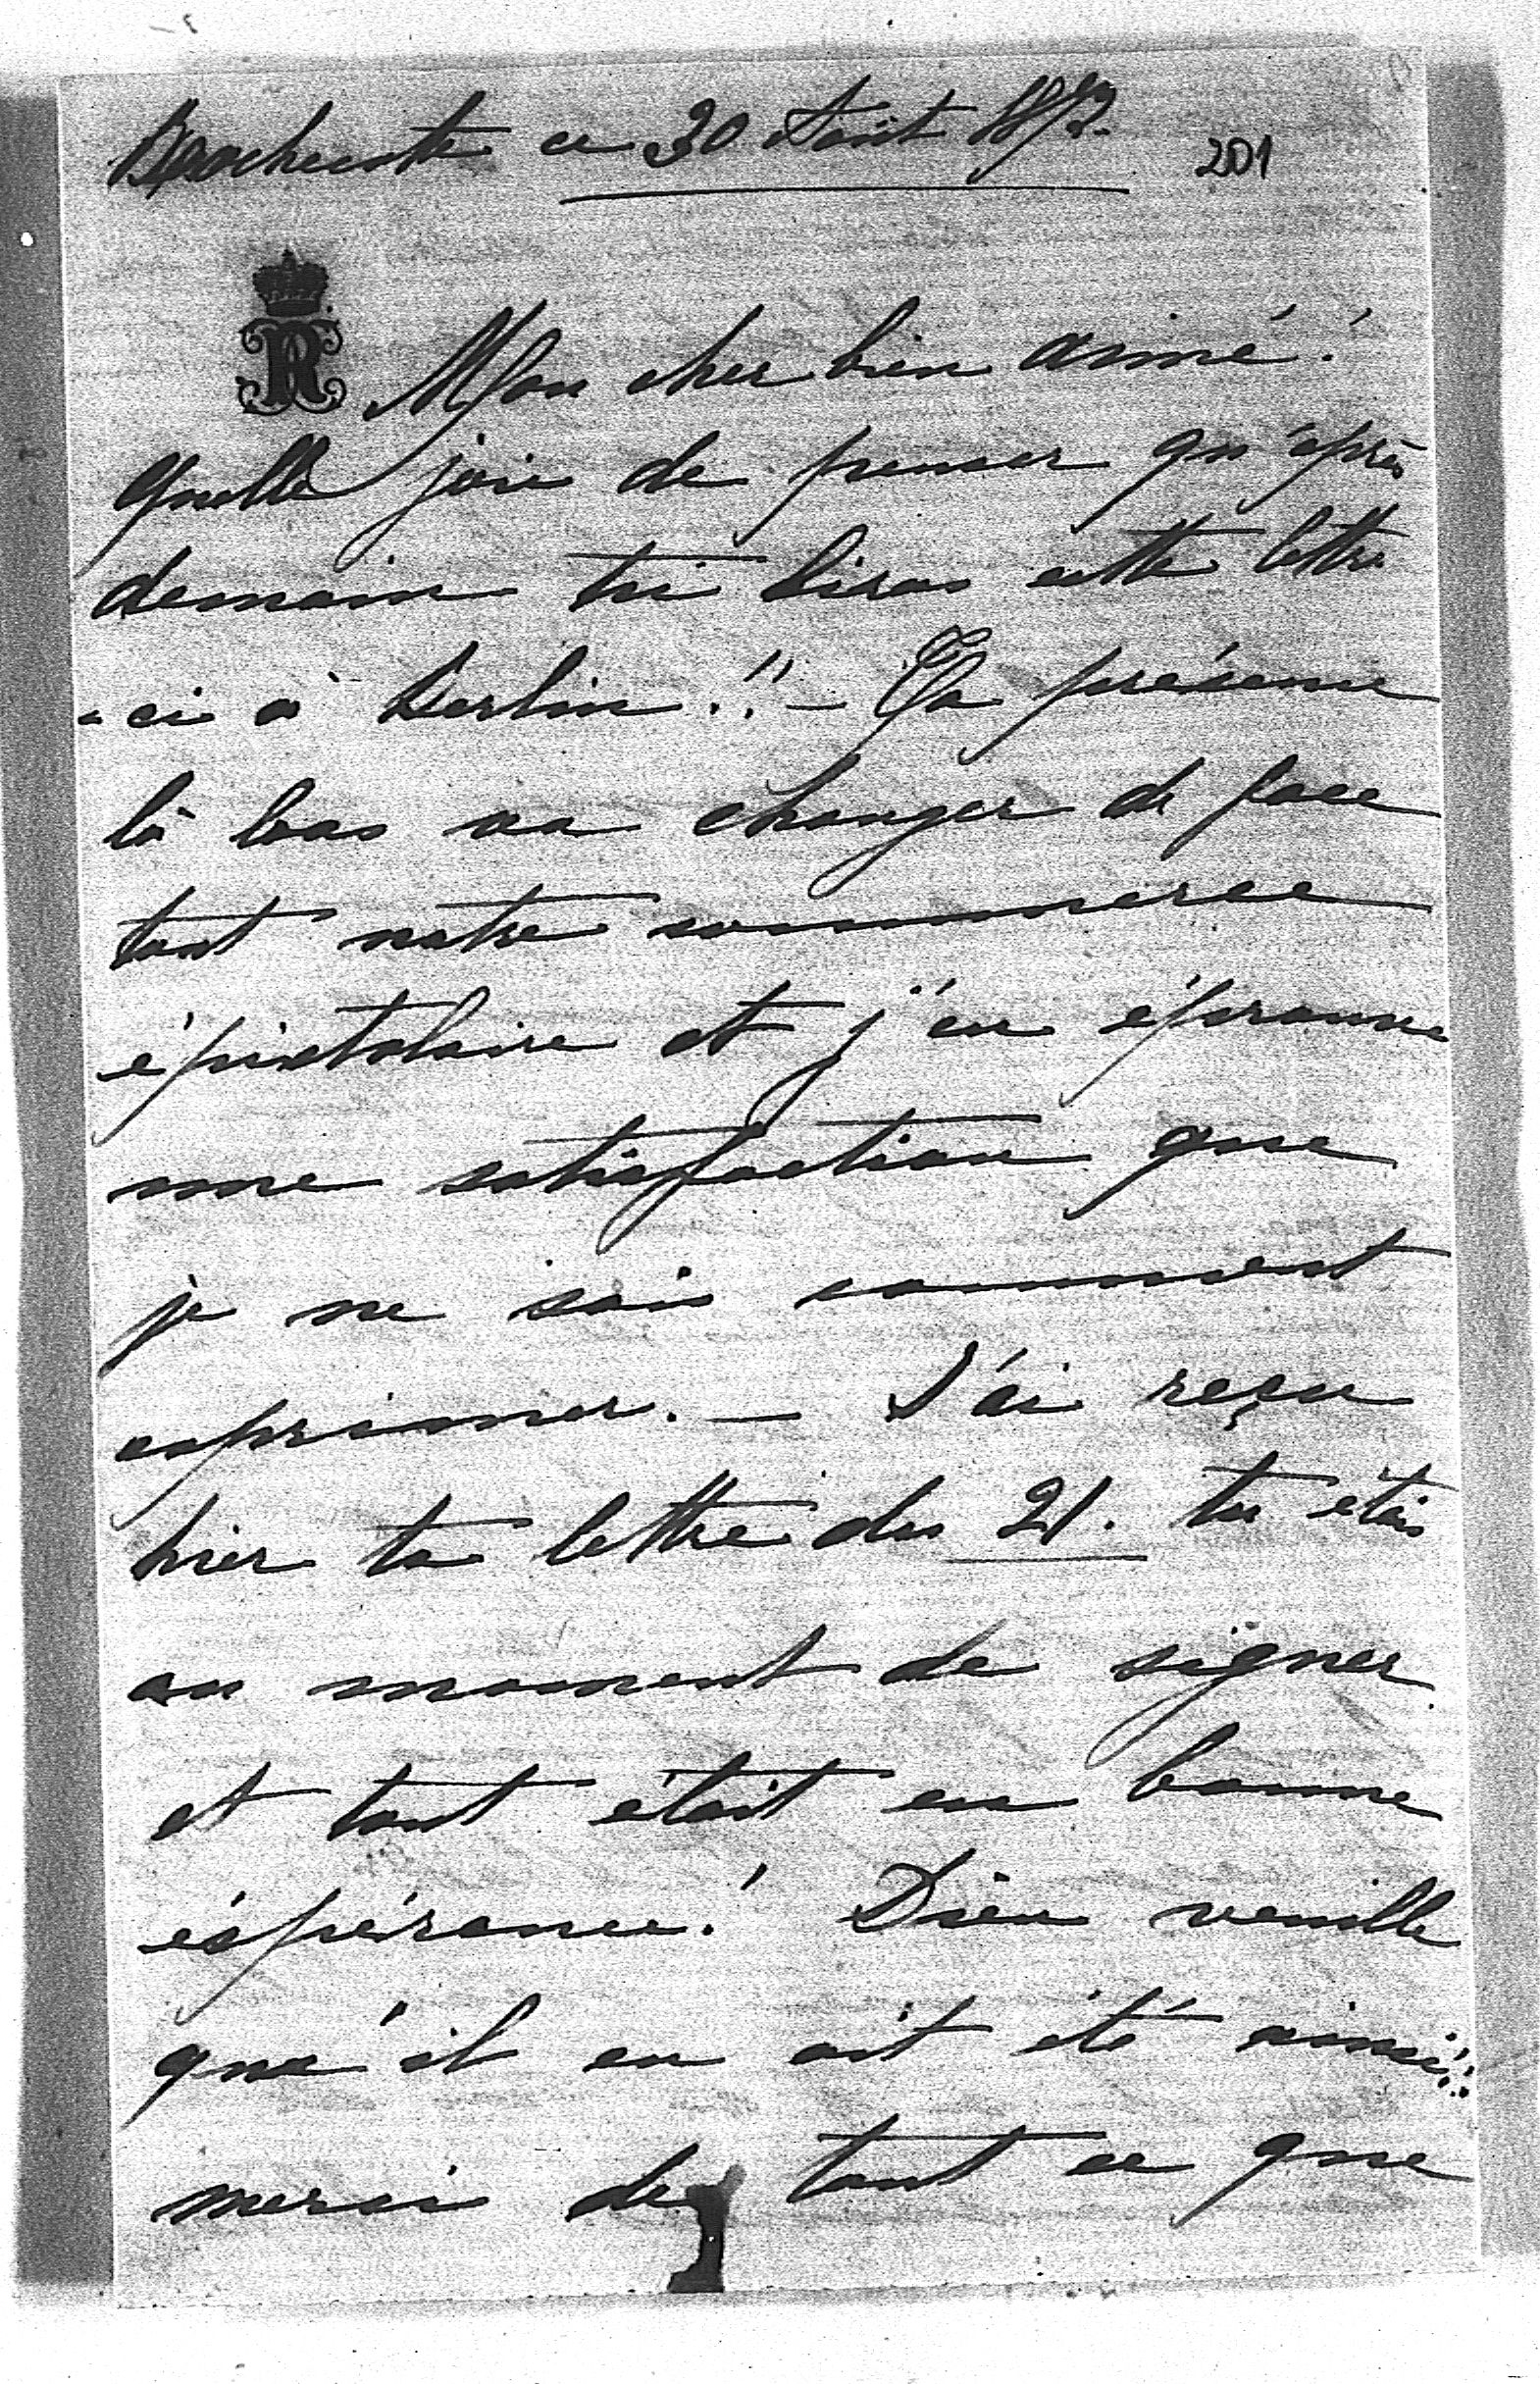 ce 30 Août 187
201
R
Mon cher bien aimé!
Quelle joie de penser qu'après
demain tu liras cette lettre
-ci à Berlin!! – Ta présence
là bas va changer de face
tout notre commerce
épistolaire et j'en éprouve
une satisfaction que
je ne sais comment
exprimer. – J'ai reçu
hier ta lettre du 21. tu étais
au moment de signer
et tout était en bonne
éspérance! Dieu veuille
qu'il en ait été ainsi!!
merci de tout ce que